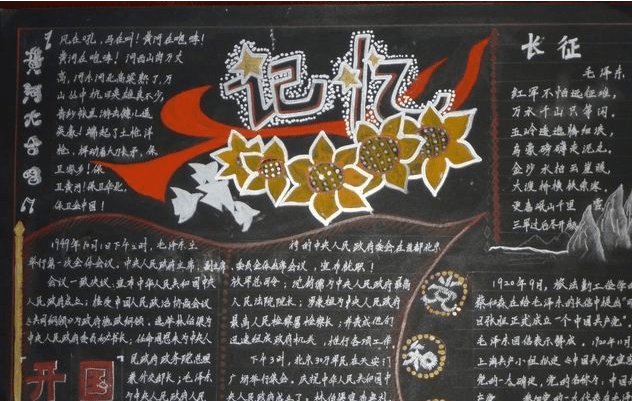 记忆
黄河大合唱
风在吼，马在叫！黄河在咆哮！
黄河在咆哮！河西山岗万丈
高，河东河北高粱熟了，万
山丛中抗日英雄真不少，
青纱帐里游击健儿逞
英豪！端起了土枪洋
枪，挥动着大刀长矛，保
卫家乡！保
卫黄河！保卫华北，
保卫全中国！
长征
毛泽东
红军不怕远征难，
万水千山只等闲。
五岭逶迤腾细浪，
乌蒙磅礴走泥丸。
金沙水拍云崖暖，
大渡桥横铁索寒。
更喜岷山千里雪
三军过后尽开颜
1949年10月1日下午2时，毛泽东主
举行第一次全体会议，中央人民政府主席、副主席
会议一致决议，宣布中华人民共和国中
央人民政府成立；接受中国人民政治协商会议
共同纲领为政府施政纲领，选举林伯渠为
中央人民政府委员会秘书长，任命周恩来为中央人
民政府政务院总理
兼外交部长；毛泽东
开国
持的中央人民政府委员会在首都北京
委员会全体席会议，宣布就职！
放军总司令；沈钧儒为中央人民政府最高
人民法院院长；罗荣桓为中央人民政府
最高人民检察署检察长；并责成他们
迅速组成政府机关，推行各项工作
下午3时，北京30万军民在天安门
广场举行集会，庆祝中华人民共和国中
央人民政府成立了。林伯渠宣布
党
和
1920年9月，旅法勤工俭学的
蔡和森在给毛泽东的长信中提出“明
目张胆正式成立一个中国共产党”。
毛泽东回信表示赞成。1920年10月
上海共产小组